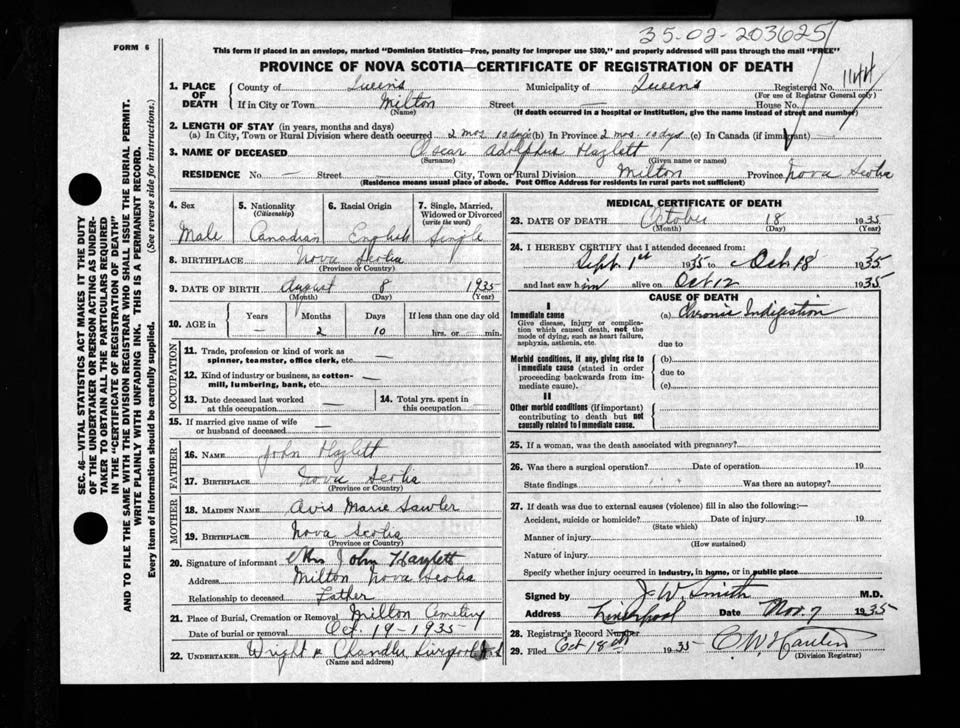 35-02-203625
FORM 6
This form if placed in an envelope, marked "Dominion Statistics—Free, penalty for improper use $300," and properly addressed will pass through the mail "FREE"
PROVINCE OF NOVA SCOTIA—CERTIFICATE OF REGISTRATION OF DEATH
1144
1. PLACE OF DEATH
County of Queens Municipality of Queens Registered No.
(For use of Registrar General only)
If in City or Town Milton Street — House No.
(Name) (If death occurred in a hospital or institution, give the name instead of street and number)
2. LENGTH OF STAY (in years, months and days)
(a) In City, Town or Rural Division where death occurred 2 mos. 10 dys (b) In Province 2 mos. 10 dys (c) In Canada (if immigrant) —
3. NAME OF DECEASED Oscar Adolphus Hazlett
(Surname) (Given name or names)
RESIDENCE No. — Street — City, Town or Rural Division Milton Province Nova Scotia
(Residence means usual place of abode. Post Office Address for residents in rural parts not sufficient)
4. Sex
Male
5. Nationality
(Citizenship)
Canadian
6. Racial Origin
English
7. Single, Married, Widowed or Divorced
(write the word)
Single
8. BIRTHPLACE Nova Scotia
(Province or Country)
9. DATE OF BIRTH August 8 1935
(Month) (Day) (Year)
10. AGE in
Years Months Days If less than one day old
— 2 10 hrs. or min.
OCCUPATION
11. Trade, profession or kind of work as spinner, teamster, office clerk, etc. —
12. Kind of industry or business, as cotton-mill, lumbering, bank, etc. —
13. Date deceased last worked at this occupation —
14. Total yrs. spent in this occupation —
15. If married give name of wife or husband of deceased —
FATHER
16. NAME John Hazlett
17. BIRTHPLACE Nova Scotia
(Province or Country)
MOTHER
18. MAIDEN NAME Avis Marie Sawler
19. BIRTHPLACE Nova Scotia
(Province or Country)
20. Signature of informant Mrs John Hazlett
Address Milton Nova Scotia
Relationship to deceased Father
21. Place of Burial, Cremation or Removal Milton Cemetery
Date of burial or removal Oct. 19 - 1935
22. UNDERTAKER Wright & Chandler Liverpool N S
(Name and address)
MEDICAL CERTIFICATE OF DEATH
23. DATE OF DEATH October 18 1935
(Month) (Day) (Year)
24. I HEREBY CERTIFY that I attended deceased from:
Sept. 1st 1935 to Oct 18 1935
and last saw him alive on Oct 12 1935
CAUSE OF DEATH
I
Immediate cause
Give disease, injury or complication which caused death, not the mode of dying, such as heart failure, asphyxia, asthenia, etc.
(a) Chronic Indigestion
due to
Morbid conditions, if any, giving rise to immediate cause (stated in order proceeding backwards from immediate cause).
(b)
due to
(c)
II
Other morbid conditions (if important) contributing to death but not causally related to immediate cause.
25. If a woman, was the death associated with pregnancy?
26. Was there a surgical operation? Date of operation 19
State findings Was there an autopsy?
27. If death was due to external causes (violence) fill in also the following:—
Accident, suicide or homicide? Date of injury 19
(State which)
Manner of injury
(How sustained)
Nature of injury
Specify whether injury occurred in industry, in home, or in public place
Signed by J. W. Smith M.D.
Address Liverpool Date Nov. 7 1935
28. Registrar's Record Number
29. Filed Oct 18th 1935
(Division Registrar)
SEC. 46—VITAL STATISTICS ACT MAKES IT THE DUTY
OF THE UNDERTAKER OR PERSON ACTING AS UNDER-
TAKER TO OBTAIN ALL THE PARTICULARS REQUIRED
IN THE "CERTIFICATE OF REGISTRATION OF DEATH"
AND TO FILE THE SAME WITH THE DIVISION REGISTRAR WHO SHALL ISSUE THE BURIAL PERMIT.
WRITE PLAINLY WITH UNFADING INK. THIS IS A PERMANENT RECORD.
Every item of information should be carefully supplied. (See reverse side for instructions.)